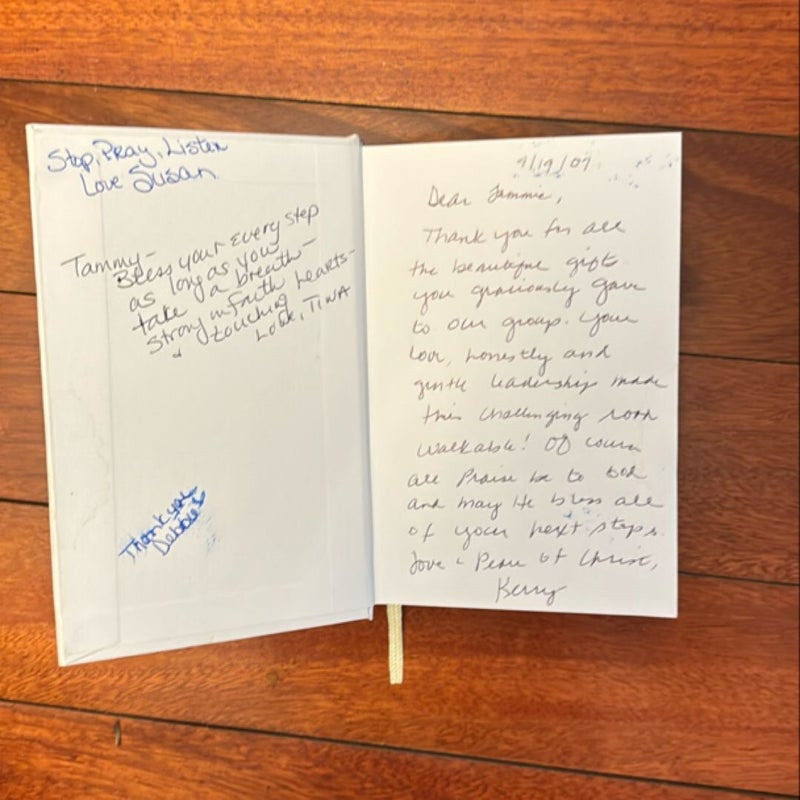 Stop, Pray, Listen
Love Susan
Tammy-
Bless your every step
as long as you
take a breath-
Strong in Faith hearts-
& touching
Love, TINA
Thank you
Debbie
9/19/07
Dear Tammie,
Thank you for all
the beautiful gifts
you graciously gave
to our group. Your
love, honestly and
gentle leadership made
this challenging road
walkable! Of course
all Praise be to God
and may He bless all
of your next steps.
Love & Peace of Christ,
Kerry